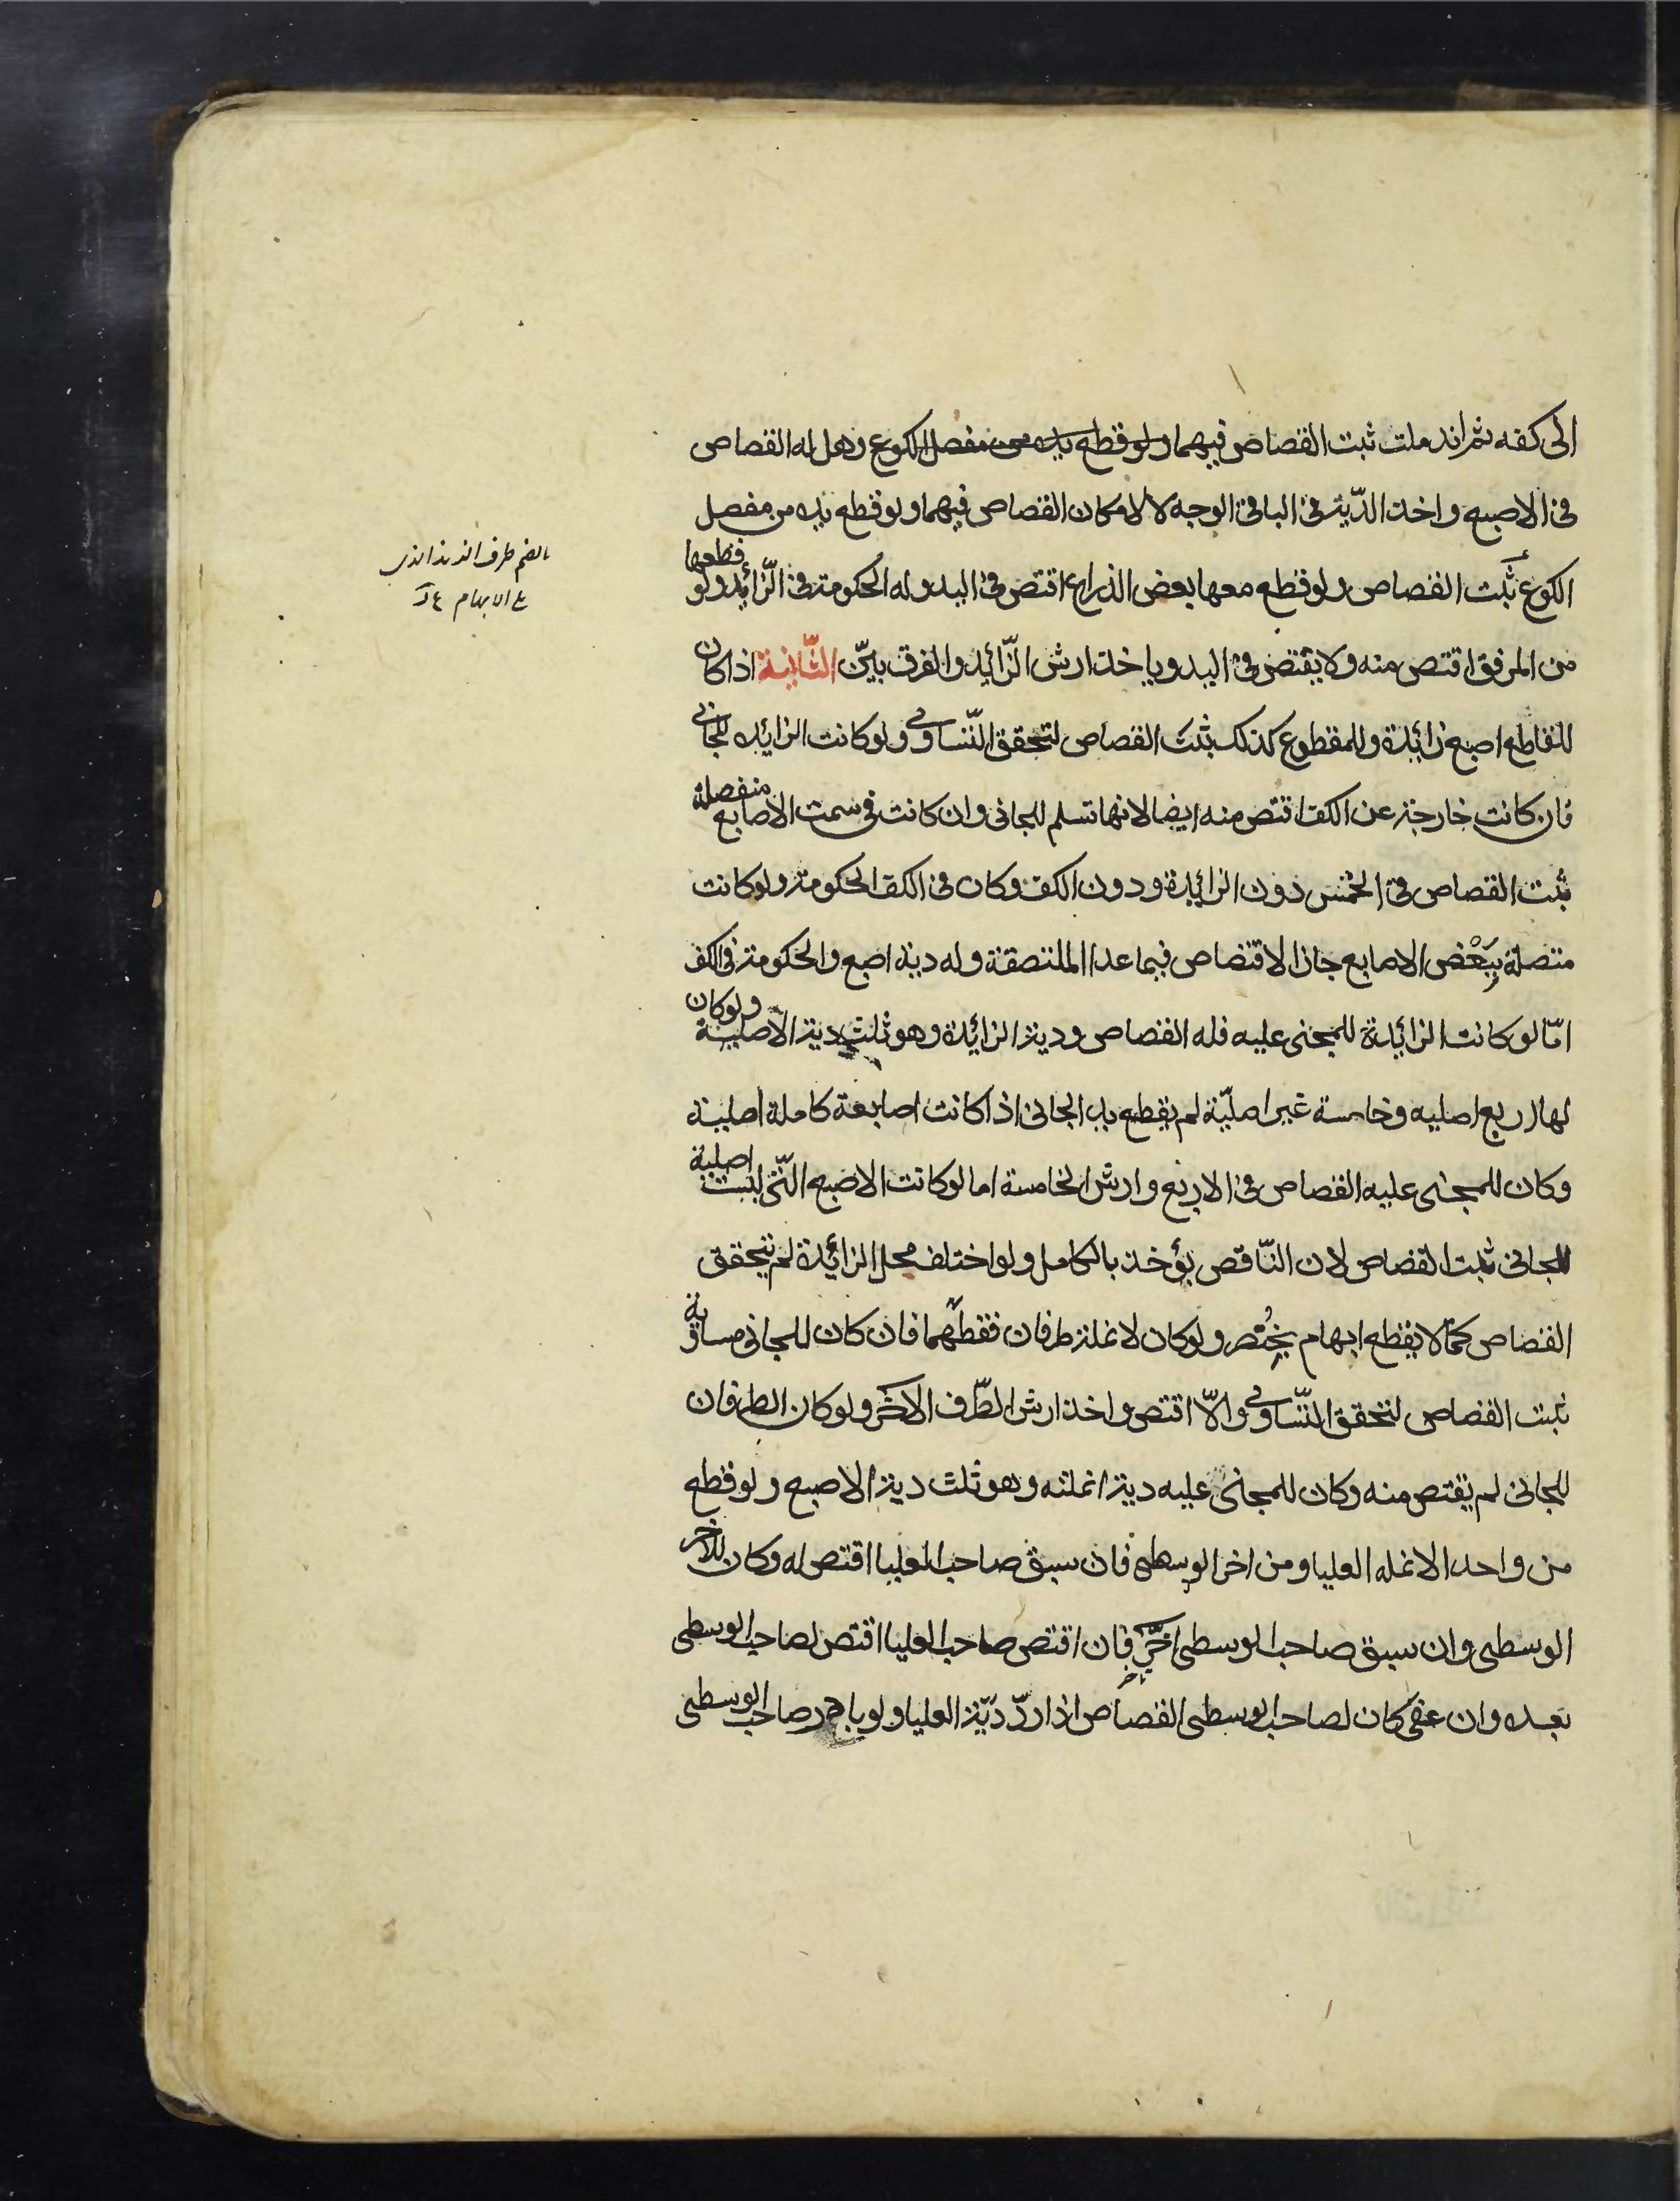 الى كفه ثم اندملت ثبت القصاص فيهما ولو قطع يده من مفصل الكوع وهل له القصاص
فى الاصبع واخذ الدّية فى الباقى الوجه لا لامكان القصاص فيهما ولو قطع يده من مفصل
الكوع ثبت القصاص ولو قطع معها بعض الذراع اقتص فى اليد وله الحكومة فى الزّائد ولو قطعها
من المرفق اقتص منه ولا يقتص فى اليد وياخذ ارش الزّائد والفرق بيّن الثّانية اذا كان
للقاطع اصبع زائدة وللمقطوع كذلك ثبت القصاص لتحقق التّساوى ولو كانت الزايده للجانى
فان كانت خارجة عن الكف اقتص منه ايضا لانها تسلم للجانى وان كانت فى سمت الاصابع منفصلة
ثبت القصاص فى الخمس دون الزائدة ودون الكف وكان فى الكف الحكومة ولو كانت
متصلة ببَعْض الاصابع جاز الاقتصاص فيما عدا الملتصقة وله دية اصبع والحكومة فى الكف
امّا لو كانت الزائدة للمجنى عليه فله القصاص ودية الزائدة وهو ثلث دية الاصلية ولو كان
لها اربع اصليه وخامسة غير اصليّة لم يقطع يد الجانى اذا كانت اصابعة كاملة اصلية
وكان للمجنى عليه القصاص فى الاربع وارش الخامسة اما لو كانت الاصبع الّتى ليست اصلية
للجانى ثبت القصاص لان النّاقص يؤخذ بالكامل ولو اختلف محل الزائدة لم يتحقق
القصاص كما لا يقطع ابهام بخنصر ولو كان لانملة طرفان فقطعهما فان كان للجانى مساوية
ثبت القصاص لتحقق التّساوى والّا اقتص واخذ ارش الطّرف الاخر ولو كان الطرفان
للجانى لم يقتص منه وكان للمجنى عليه دية انملته وهو ثلث دية الاصبع ولو قطع
من واحد الانمله العليا ومن اخر الوسطى فان سبق صاحب العليا اقتص له وكان للاخر
الوسطى وان سبق صاحب الوسطى اخّر فان اقتص صاحب العليا اقتص لصاحب الوسطى
بعده وان عفى كان لصاحب الوسطى القصاص اذا ردّ ديّة العليا ولو بادر صاحب الوسطى
بالضم طرف الزند الذى
على الابهام